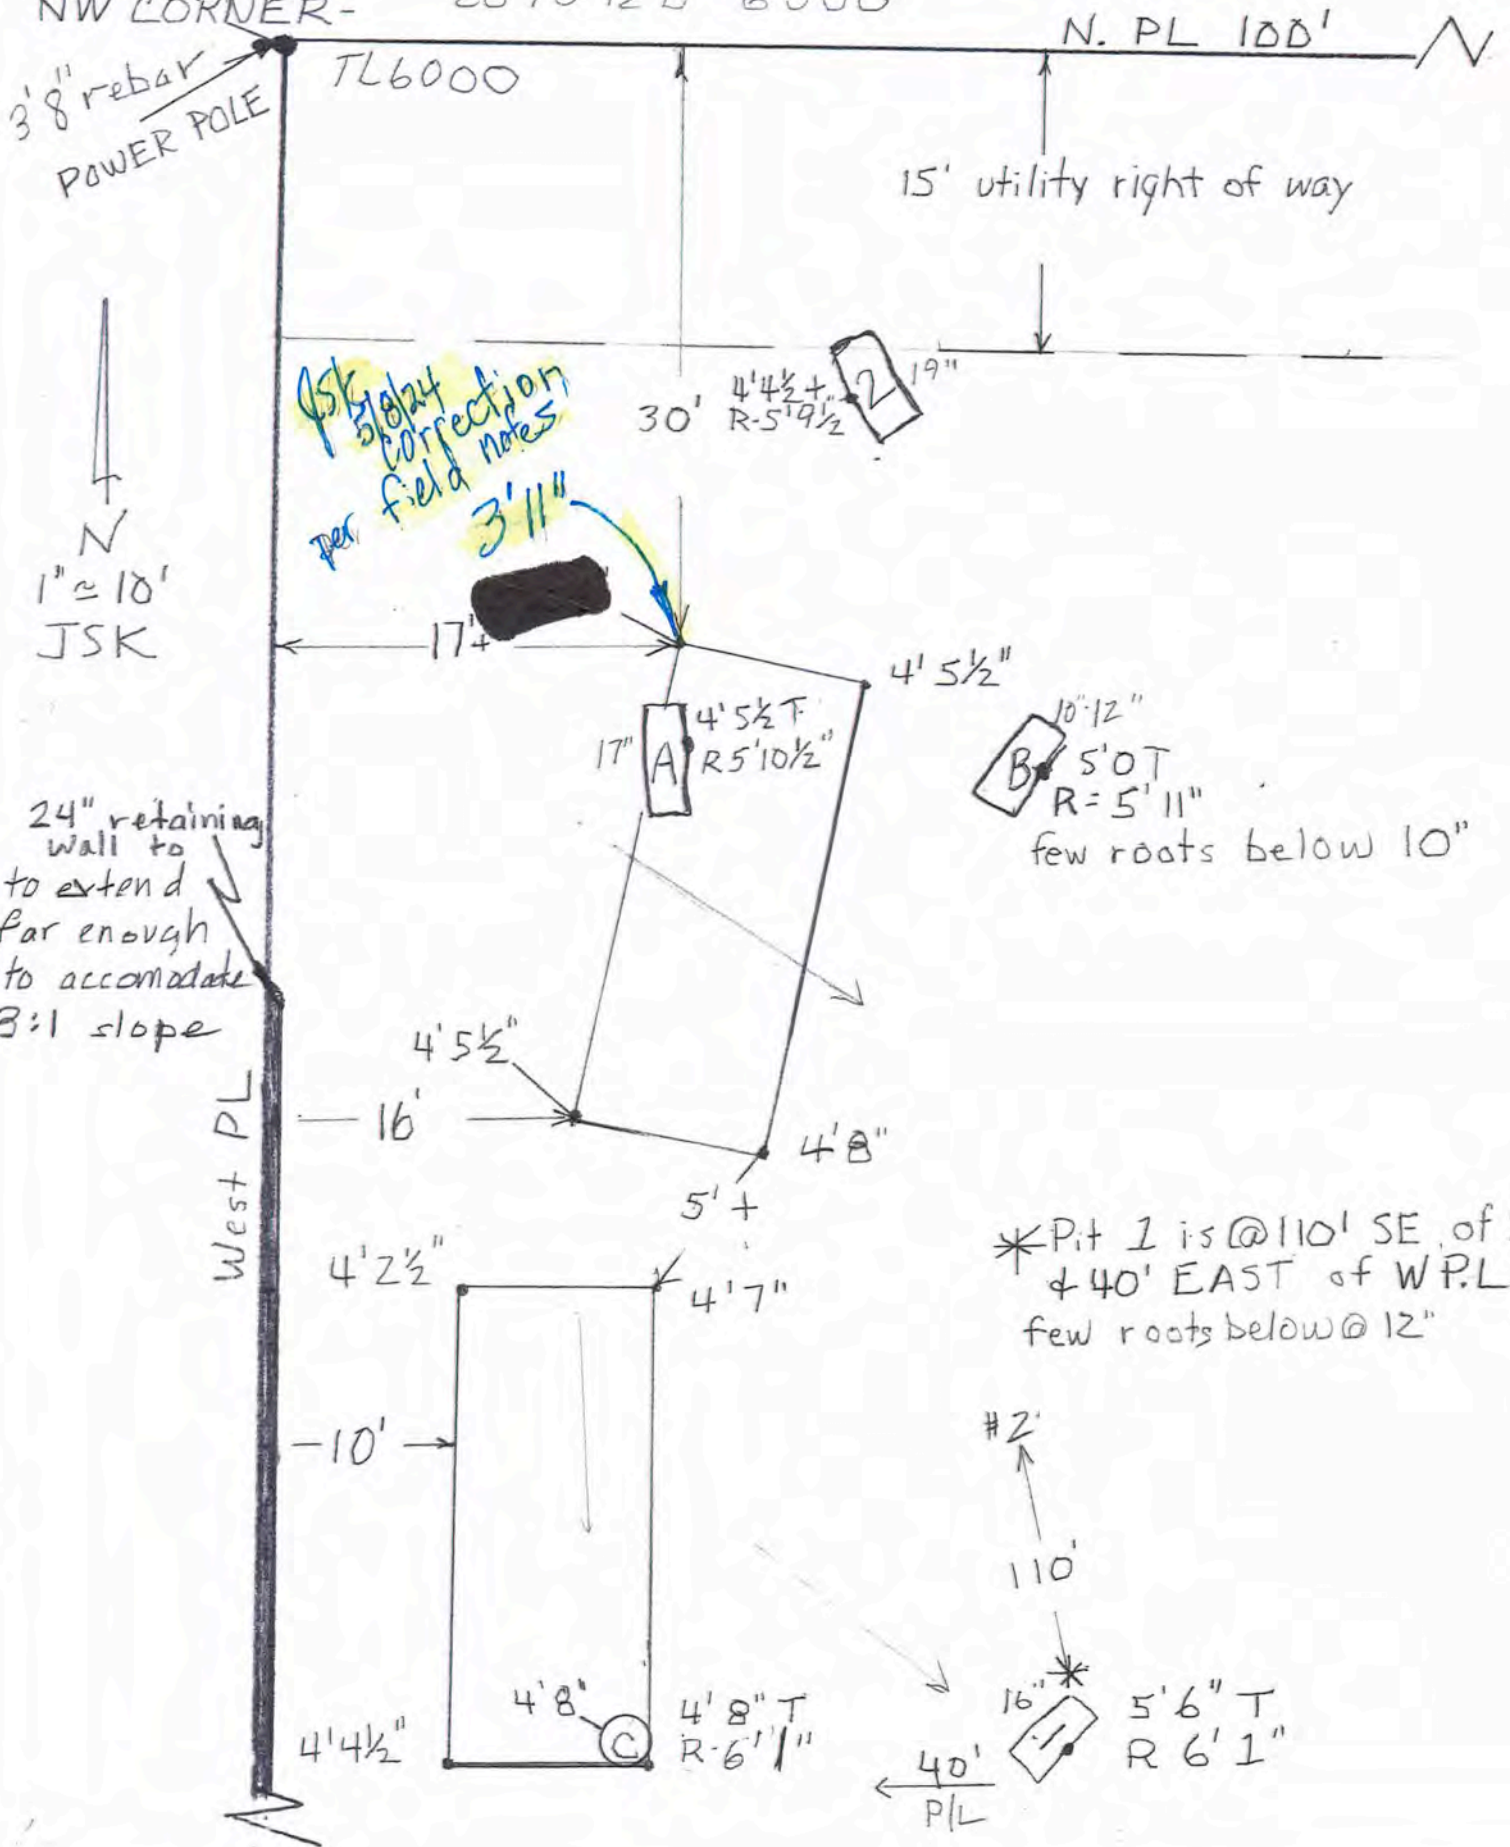 NW CORNER-
N. PL 100'
3'8" rebar
POWER POLE
TL6000
15' utility right of way
N
1" ≃ 10'
JSK
JSK
5/8/24
correction
per field notes
3'11"
30'
4'4½ +
R-5'9½"
2
19"
17'+
4' 5½"
17"
A
4'5½ T
R5'10½"
10"-12"
B
5'0 T
R= 5'11"
few roots below 10"
24" retaining
wall to
to extend
far enough
to accomodate
3:1 slope
4'5½"
16'
4'8"
5'+
West PL
*Pit 1 is @110' SE of
& 40' EAST of W P.L
few roots below @ 12"
4'2½"
4'7"
10'
#2
110'
*
16"
1
5'6" T
R 6'1"
4'8"
C
4'8" T
R-6'1"
4'4½"
40'
P/L